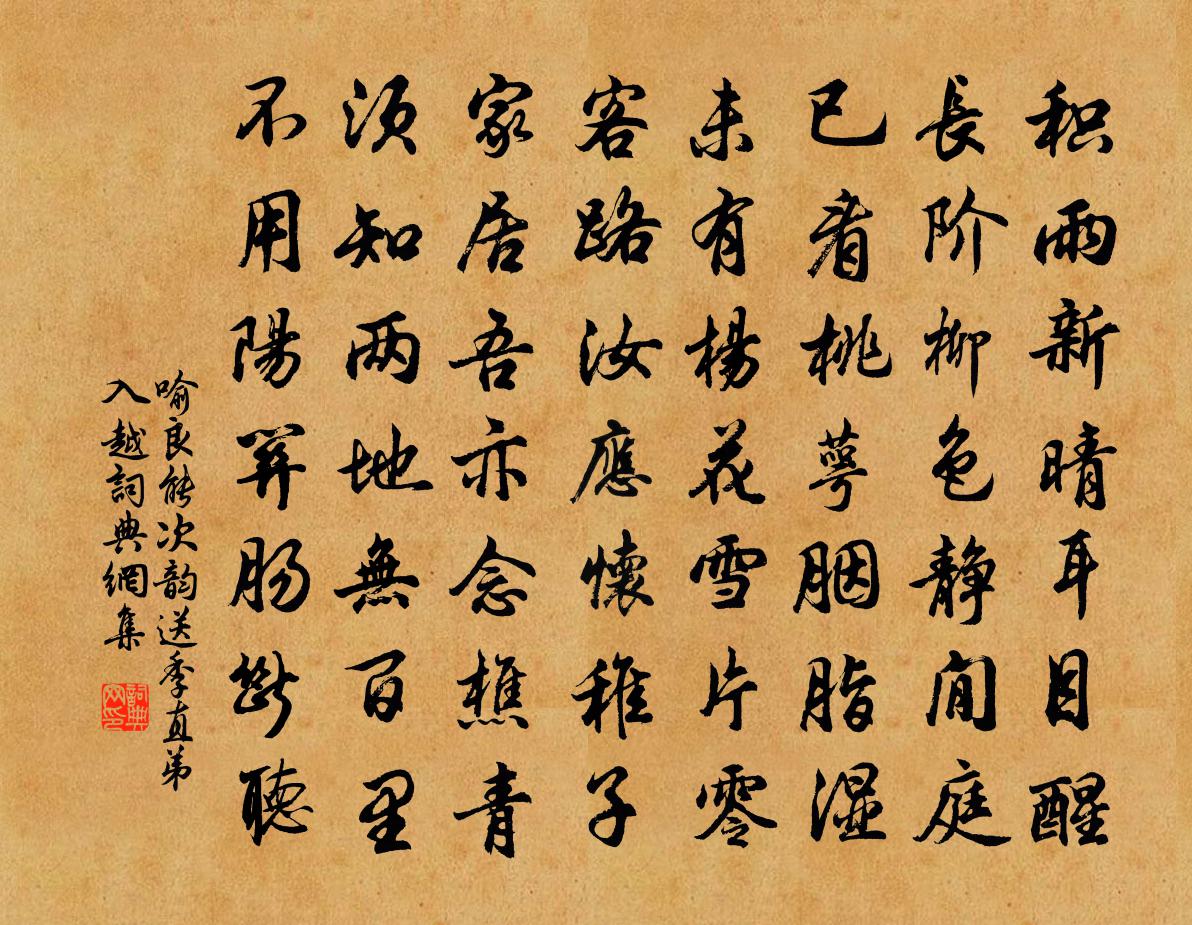 积雨新晴耳目醒
長阶柳色静间庭
已看桃萼胭脂湿
未有楊花雪片零
客路汝應懷稚子
家居吾亦念樵青
须知两地無百里
不用陽关肠斷聽
喻良能次韵送季直弟
入越詞典網集
詞典网印